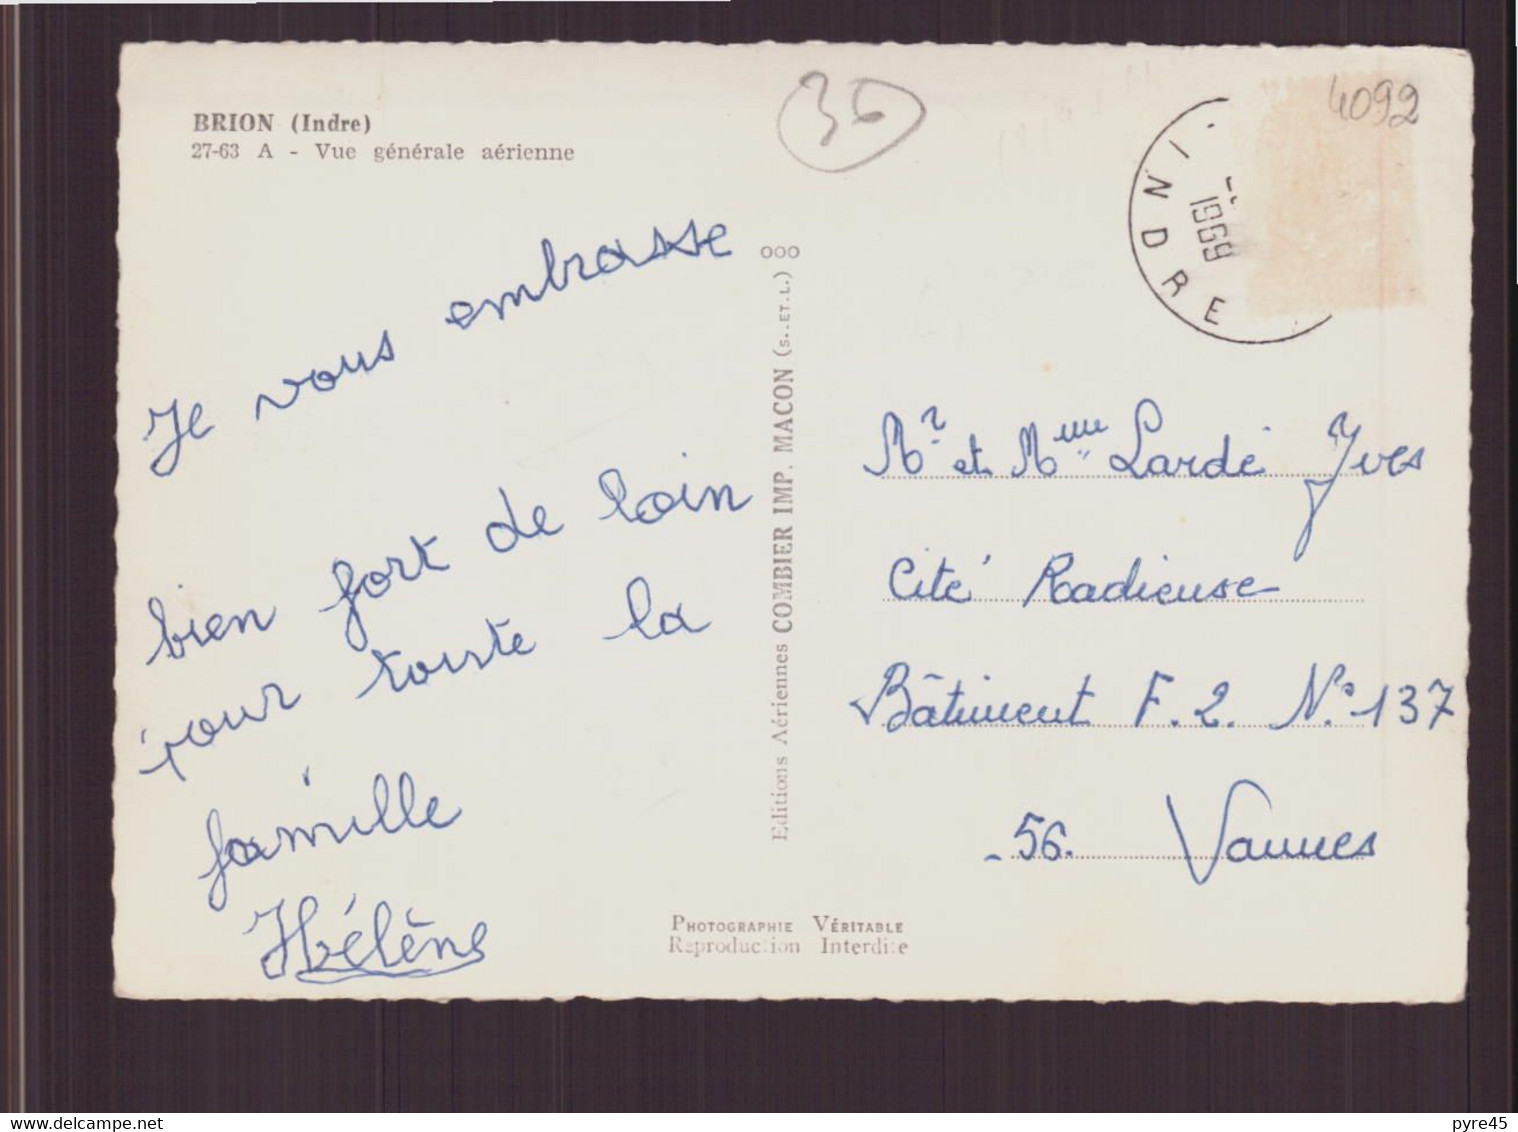 BRION (Indre)
27-63 A - Vue générale aérienne
36
4092
INDRE
1969
Je vous embrasse
bien fort de loin
pour toute la
famille
Hélène
ooo
Editions Aériennes COMBIER IMP. MACON (S.-ET.L.)
Mr et Mme Lardé Yves
Cité Radieuse
Bâtiment F.2. No 137
- 56. Vannes
PHOTOGRAPHIE VÉRITABLE
Reproduction Interdite
pyre45